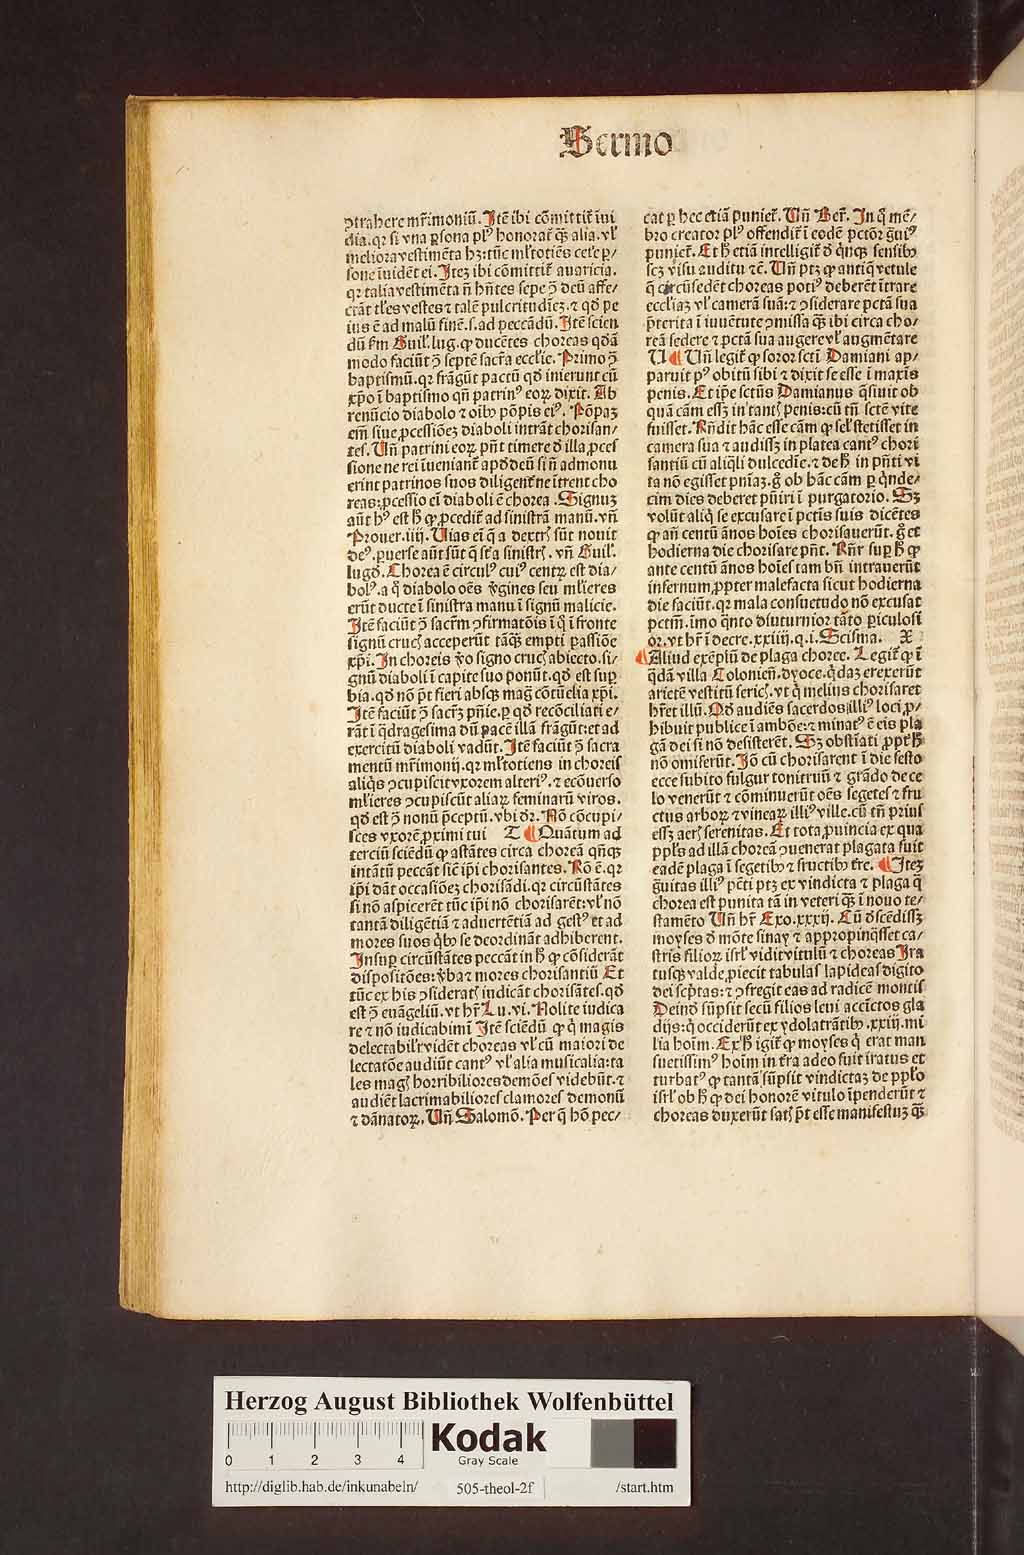 Sermo
ꝯtrahere mr̄imoniū. Itē ibi cōmittit͛ inui
dia. qꝛ si vna ꝑsona plꝰ honorat͛ qꝫ alia. vl̓
meliora vestimēta hꝫ: tūc ml̓totiēs ceteꝝ ꝑ⸗
sone īuidēt ei. Itez ibi cōmittit͛ auaricia.
qꝛ talia vestimēta nō hn̄tes sepe ꝯ̄ deū affe⸗
ctāt tl̓es vestes ⁊ talē pulcritudīeꝫ. ⁊ qd̓ pe
ius ē ad malū finē. s. ad peccādū. Itē scien
dū fm̄ Guil̓. lug. ꝙ ducētes choreas qd̓ā
modo faciūt ꝯ̄ septē sacr̄a eccl̓ie. Primo ꝯ̄
baptismū. qꝛ frāgūt pactū qd̓ inierunt cū
xp̄o ī baptismo qn̄ patrinꝰ eoꝝ dixit. Ab
renūcio diabolo ⁊ oībꝰ pōpis eiꝰ. Pōpaꝫ
em̄ siue ꝓcessiōeꝫ diaboli intrāt chorisan⸗
tes. Vn̄ patrini eoꝝ pn̄t timere ꝺ illa ꝓces
sione ne rei īueniant͛ apd̓ deū si nō admonu
erint patrinos suos diligent͛ ne ītrent cho
reas: ꝓcessio em̄ diaboli ē chorea. Signuꝫ
aūt hꝰ est h̄ ꝙ ꝓcedit͛ ad sinistrā manū. vn̄
Prouer. iiij. Uias em̄ q̄ a dextr̄ sūt nouit
deꝰ. ꝑuerse aūt sūt q̄ st̄ a sinistr̄. vn̄ Guil̓.
lugd̓. Chorea ē circulꝰ cuiꝰ centꝝ est dia⸗
bolꝰ. a q̄ diabolo oēs v̓gines seu ml̓ieres
erūt ducte ī sinistra manu ī signū malicie.
Itē faciūt ꝯ̄ sacrm̄ ꝯfirmatōis ī q̄ ī fronte
signū cruc̄ acceperūt tāqꝫ empti passiōe
xp̄i. In choreis v̓o signo cruc̄ abiecto. si⸗
gnū diaboli ī capite suo ponūt. qd̓ est suꝑ
bia. qd̓ nō p̄t fieri absqꝫ maḡ cōtūelia xp̄i.
Itē faciūt ꝯ̄ sacrꝫ pn̄ie. ꝑ qd̓ recōciliati e⸗
rāt ī q̄dragesima dū pacē illā frāgūt: et ad
exercitū diaboli vadūt. Itē faciūt ꝯ̄ sacra
mentū mr̄imonij. qꝛ ml̓totiens in choreis
aliq̄s ꝯcupiscit vxorem alteriꝰ. ⁊ ecōuerso
ml̓ieres ꝯcupiscūt aliaꝝ feminarū viros.
qd̓ est ꝯ̄ nonū p̄ceptū. vbi dꝛ. Nō cōcupi⸗
sces vxorē ꝓximi tui T ¶ Quātum ad
terciū sciēdū ꝙ astātes circa choreā qn̄qꝫ
intātū peccāt sic̄ ip̄i chorisantes. Rō ē. qꝛ
ip̄i dāt occasiōeꝫ chorisādi. qꝛ circūstātes
si nō aspicerēt tūc ip̄i nō chorisarēt: vl̓ nō
tantā diligētiā ⁊ aduertētiā ad gestꝰ et ad
mores suos q̄bꝰ se deordināt adhiberent.
Insuꝑ circūstātes peccāt in h̄ ꝙ cōsiderāt
dispositōes: v̓ba ⁊ mores chorisantiū Et
tūc ex his ꝯsiderat̄ iudicāt chorisātes. qd̓
est ꝯ̄ euāgeliū. vt hr̄ Lu. vi. Nolite iudica
re ⁊ nō iudicabimī Itē sciēdū ꝙ q̄ magis
delectabilr̄ vidēt choreas vl̓ cū maiori de
lectatōe audiūt cantꝰ vl̓ alia musicalia: ta
les maḡ horribiliores demōes videbūt. ⁊
audiēt lacrimabiliores clamores demonū
⁊ dānatoꝝ. Vn̄ Salomō. Per q̄ hō pec⸗
cat ꝑ hec etiā puniet͛. Vn̄ Ber̄. In q̄ mē⸗
bro creator plꝰ offendit͛ ī eodē pctōr ḡuiꝰ
puniet͛. Et h̄ etiā intelligit͛ ꝺ q̄nqꝫ sensibꝰ
scꝫ visu auditu ⁊c̄. Vn̄ ptꝫ ꝙ antiq̄ vetule
q̄ circūsedēt choreas potiꝰ deberēt ītrare
eccl̓iaꝫ vl̓ camerā suā: ⁊ ꝯsiderare pctā sua
p̄terita ī iuuētute ꝯmissa qꝫ ibi circa cho⸗
reā sedere ⁊ pctā sua augere vl̓ augmētare
V ¶ Vn̄ legit͛ ꝙ soror scti Damiani ap⸗
paruit pꝰ obitū sibi ⁊ dixit se esse ī maxīs
penis. Et ip̄e sctūs Damianus q̄siuit ob
quā cām essꝫ in tant̄ penis: cū tn̄ sctē vite
fuisset. Rn̄dit hāc esse cām ꝙ sel̓ stetisset in
camera sua ⁊ audissꝫ in platea cantꝰ chori
santiū cū aliq̄li dulcedīe. ⁊ de h̄ in pn̄ti vi
ta nō egisset pn̄iaꝫ. ḡ ob hāc cām ꝑ q̄nde⸗
cim dies deberet pn̄iri ī purgatorio. Sꝫ
volūt aliq̄ se excusare ī pctīs suis dicētes
ꝙ añ centū ānos hoīes chorisauerūt. ḡ et
hodierna die chorisare pn̄t. Rn̄r suꝑ h̄ ꝙ
ante centū ānos hoīes tam bn̄ intrauerūt
infernum ꝓpter malefacta sicut hodierna
die faciūt. qꝛ mala consuetudo nō excusat
pctm̄. īmo q̄nto diuturnior tāto ꝑiculosi
or. vt hr̄ ī decre. xxiiij. q. i. Scisma. X
¶ Aliud exēplū de plaga choree. Legit͛ ꝙ ī
q̄dā villa Colonien̄. dyoce. q̄daꝫ erexerūt
arietē vestitū seric̄. vt q̄ melius chorisaret
hr̄et illū. Qd̓ audiēs sacerdos illiꝰ loci ꝓ⸗
hibuit publice ī ambōe: ⁊ minatꝰ ē eis pla
gā dei si nō desisterēt. Sꝫ obstīati ꝓpt͛ h̄
nō omiserūt. Iō cū chorisarent ī die festo
ecce subito fulgur tonitruū ⁊ grādo de ce
lo venerūt ⁊ cōminuerūt oēs segetes ⁊ fru
ctus arboꝝ ⁊ vineaꝝ illiꝰ ville. cū tn̄ prius
essꝫ aer̄ serenitas. Et tota ꝓuincia ex qua
ppl̓s ad illā choreā ꝯuenerat plagata fuit
eadē plaga ī segetibꝰ ⁊ fructibꝰ tr̄e. ¶ Iteꝫ
ḡuitas illiꝰ pcti ptꝫ ex vindicta ⁊ plaga q̄
chorea est punita tā in veteri qꝫ ī nouo te⸗
stamēto Vn̄ hr̄ Exo. xxxij. Cū ꝺscēdissꝫ
moyses ꝺ mōte sinay ⁊ appropinq̄sset ca⸗
stris filioꝝ isrl̓ vidit vitulū ⁊ choreas Ira
tusqꝫ valde ꝓiecit tabulas lapideas digito
dei scp̄tas: ⁊ ꝯfregit eas ad radicē montis
Deinꝺ sūpsit secū filios leui accīctos gla
dijs: q̄ occiderūt ex ydolatrātibꝰ. xxiij. mi
lia hoīm. Ex h̄ igit͛ ꝙ moyses q̄ erat man
suetissimꝰ hoīm in tr̄a adeo fuit iratus et
turbatꝰ ꝙ tantā sūpsit vindictaꝫ de ppl̓o
isrl̓ ob h̄ ꝙ dei honorē vitulo īpenderūt ⁊
choreas duxerūt sat̄ p̄t esse manifestuꝫ qꝫ
Herzog August Bibliothek Wolfenbüttel
0 1 2 3 4
Kodak
Gray Scale
http://diglib.hab.de/inkunabeln/ 505-theol-2f /start.htm